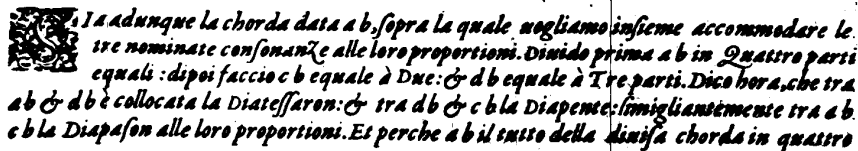 SIa adunque la chorda data a b, sopra la quale uogliamo insieme accommodare le
tre nominate consonanze alle loro proportioni. Diuido prima a b in Quattro parti
equali: dipoi faccio c b equale à Due: & d b equale à Tre parti. Dico hora, che tra
a b & d b è collocata la Diatessaron: & tra d b & c b la Diapente: simigliantemente tra a b.
c b la Diapason alle loro proportioni. Et perche a b il tutto della diuisa chorda in quattro